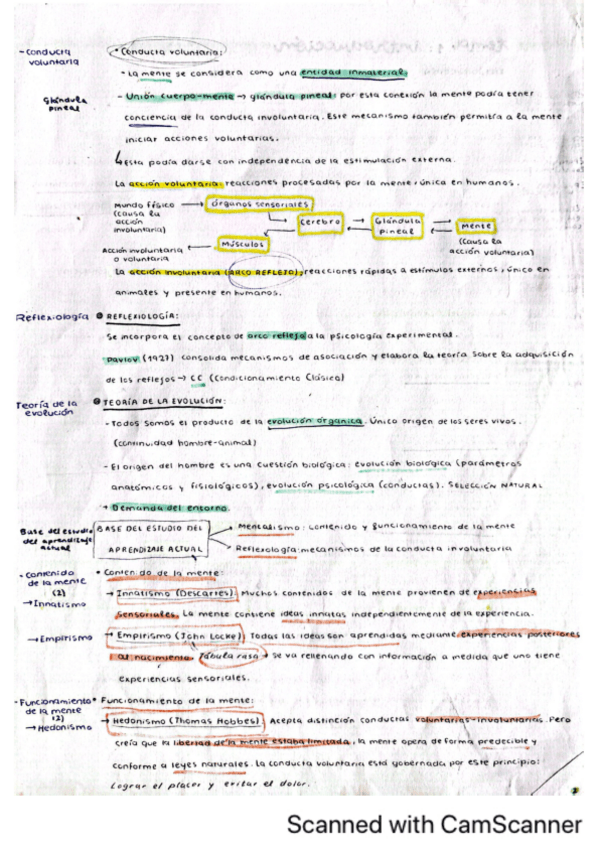 - Conducta voluntaria
• Conducta voluntaria:
- La mente se considera como una entidad inmaterial.
Glándula pineal
- Unión cuerpo-mente → glándula pineal: por esta conexión la mente podía tener
conciencia de la conducta involuntaria. Este mecanismo también permitía a la mente
iniciar acciones voluntarias.
↳ Esta podía darse con independencia de la estimulación externa.
La acción voluntaria: reacciones procesadas por la mente, única en humanos.
Mundo físico → órganos sensoriales
(causa la acción involuntaria)
Cerebro
Glándula pineal
Mente
(causa la acción voluntaria)
Músculos
Acción involuntaria o voluntaria
La acción involuntaria (ARCO REFLEJO), reacciones rápidas a estímulos externos, único en
animales y presente en humanos.
Reflexiología
REFLEXIOLOGÍA:
Se incorpora el concepto de arco reflejo a la psicología experimental.
Pavlov (1927) consolida mecanismos de asociación y elabora la teoría sobre la adquisición
de los reflejos → CC (Condicionamiento Clásico)
Teoría de la evolución
TEORÍA DE LA EVOLUCIÓN:
- Todos somos el producto de la evolución orgánica. Único origen de los seres vivos.
(continuidad hombre-animal)
- El origen del hombre es una cuestión biológica: evolución biológica (parámetros
anatómicos y fisiológicos), evolución psicológica (conductas). SELECCIÓN NATURAL
→ Demanda del entorno.
Base del estudio del aprendizaje actual
BASE DEL ESTUDIO DEL APRENDIZAJE ACTUAL
Mentalismo: contenido y funcionamiento de la mente
Reflexología: mecanismos de la conducta involuntaria
- Contenido de la mente (2)
• Contenido de la mente:
→ Innatismo
→ Innatismo (Descartes): Muchos contenidos de la mente provienen de experiencias
sensoriales. La mente contiene ideas innatas independientemente de la experiencia.
→ Empirismo
→ Empirismo (John Locke): Todas las ideas son aprendidas mediante experiencias posteriores
al nacimiento. Tábula rasa → se va rellenando con información a medida que uno tiene
experiencias sensoriales.
- Funcionamiento de la mente (2)
• Funcionamiento de la mente:
→ Hedonismo
→ Hedonismo (Thomas Hobbes): Acepta distinción conductas voluntarias-involuntarias. Pero
creía que la libertad de la mente estaba limitada, la mente opera de forma predecible y
conforme a leyes naturales. La conducta voluntaria está gobernada por este principio:
Lograr el placer y evitar el dolor.
Scanned with CamScanner